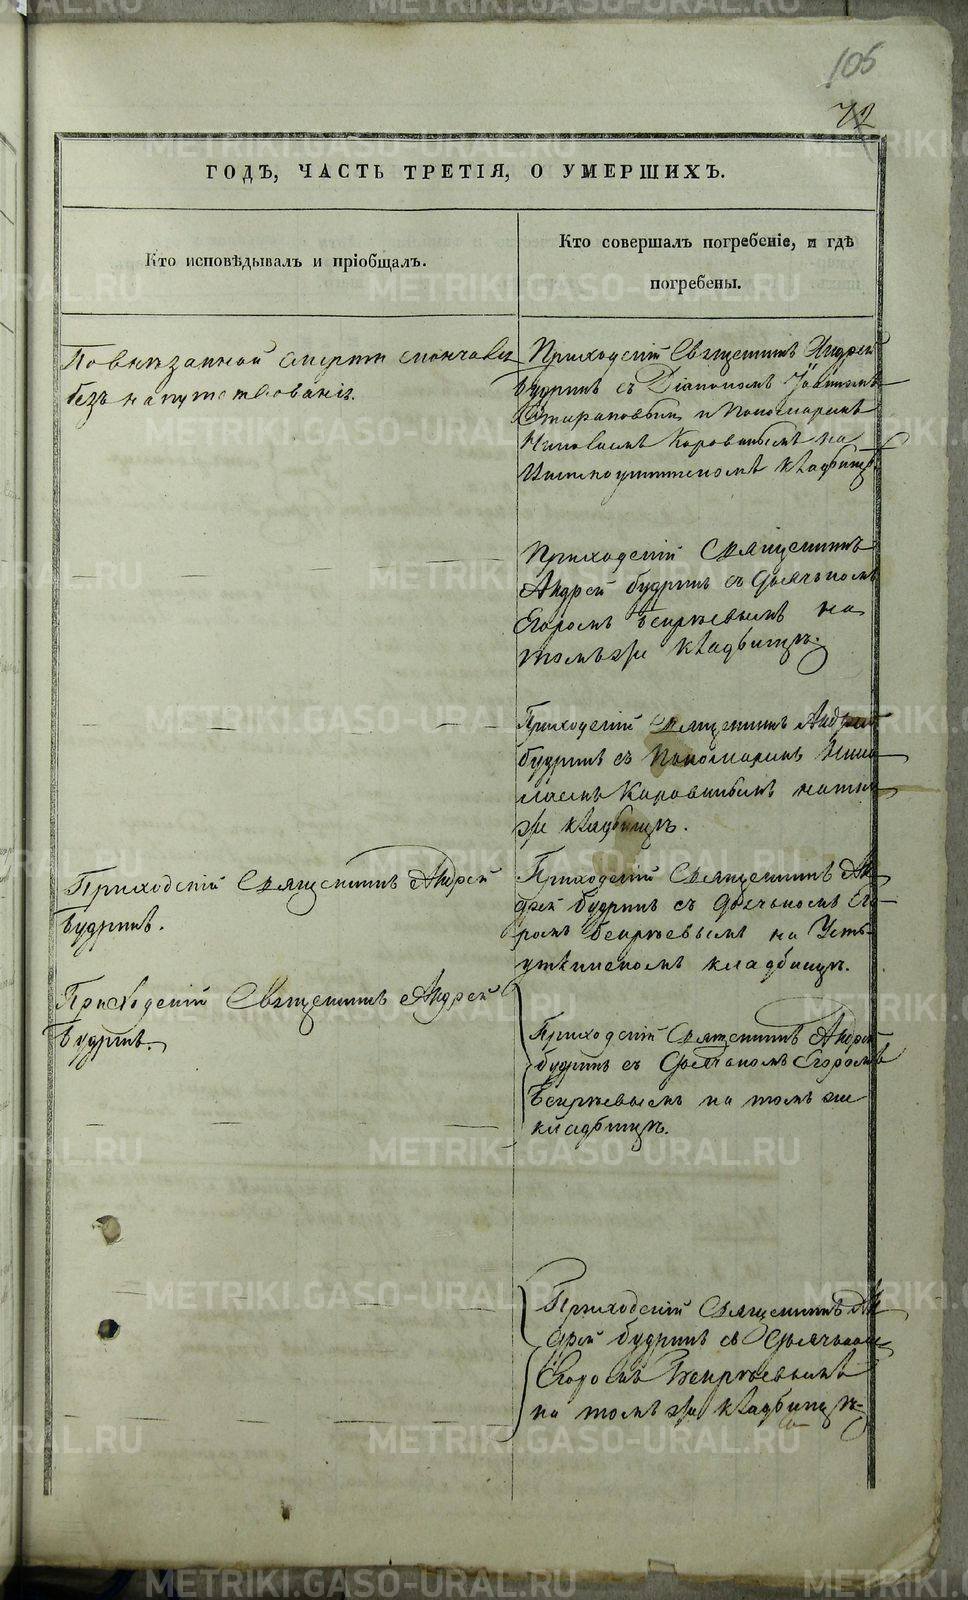 105
72
ГОДЪ, ЧАСТЬ ТРЕТІЯ, О УМЕРШИХЪ.
Кто исповѣдывалъ и пріобщалъ.
Кто совершалъ погребеніе, и гдѣ
погребены.
По внезапной смерти
безъ напутствованія.
Приходскій Священникъ Андрей
Будринъ съ Діакономъ Іоанномъ
и Пономаремъ
Николаемъ Коровинымъ на
кладбищѣ.
Приходскій Священникъ
Андрей Будринъ съ Дьячкомъ
Егоромъ на
томъ же кладбищѣ.
Приходскій Священникъ Андрей
Будринъ съ Пономаремъ Нико
лаемъ Коровинымъ на томъ
же кладбищѣ.
Приходскій Священникъ Андрей
Будринъ.
Приходскій Священникъ Ан
дрей Будринъ съ Дьячкомъ Его-
ромъ на Усть-
уткинскомъ кладбищѣ.
Приходскій Священникъ Андрей
Будринъ.
Приходскій Священникъ Андрей
Будринъ съ Дьячкомъ Егоромъ
на томъ же
кладбищѣ.
Приходскій Священникъ Ан
дрей Будринъ съ Дьячкомъ
Егоромъ
на томъ же кладбищѣ.
METRIKI.GASO-URAL.RU